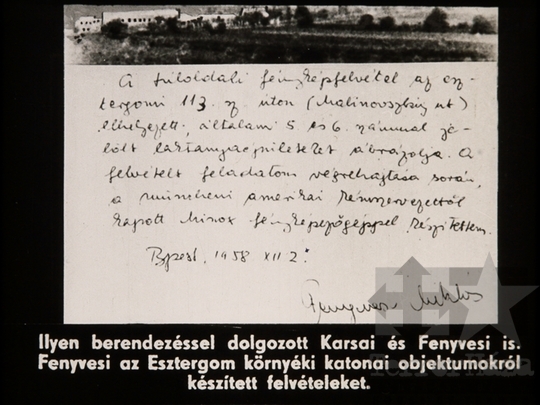 A túloldali fényképfelvétel az esz-
tergomi 113 sz. úton (Malinovszkij út)
elhelyezett, általam 5 és 6 számmal je-
lölt laktanyaépületeket ábrázolja. A
felvételt feladatom végrehajtása során,
a müncheni amerikai kémszervezettől
kapott Minox fényképezőgéppel készítettem.
Bpest, 1958 XII 2.
Fenyvesi Miklós
Ilyen berendezéssel dolgozott Karsai és Fenyvesi is.
Fenyvesi az Esztergom környéki katonai objektumokról
készített felvételeket.